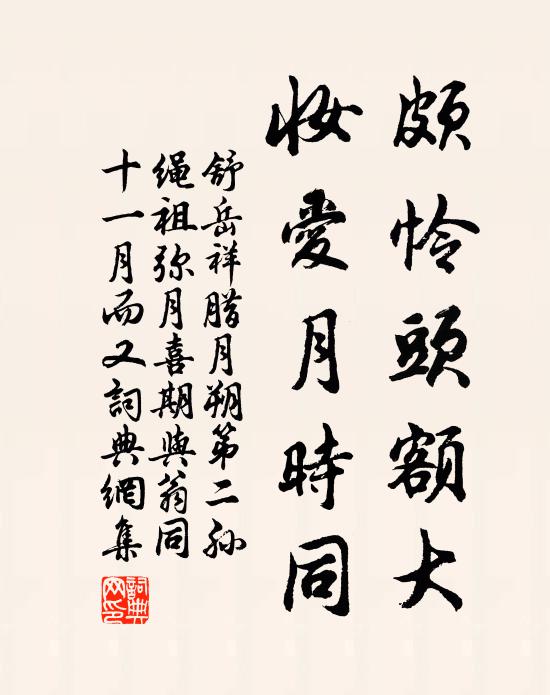 頗怜頭額大
妝愛月時同
舒岳祥腊月朔第二孙
绳祖弥月喜期與翁同
十一月而又詞典網集
詞典网印